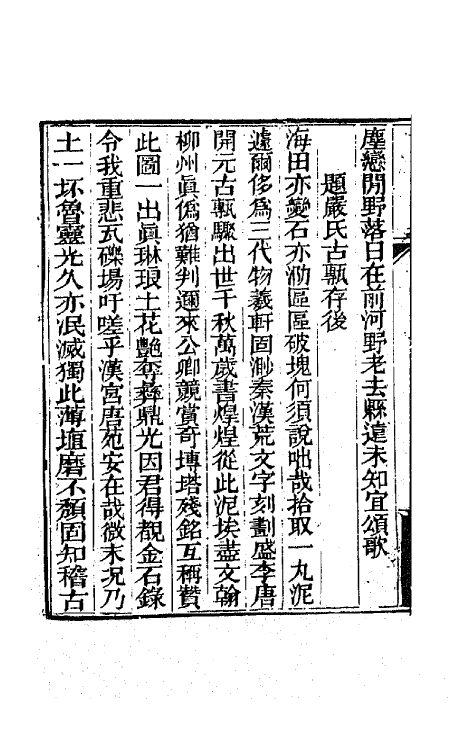 塵戀閒野落日在前河野老去縣遠未知宜頌歌
題嚴氏古甎存後
海田亦變石亦泐區區破塊何須說咄哉拾取一丸泥
遽爾侈爲三代物羲軒固渺秦漢荒文字刻劃盛李唐
開元古甎驟出世千秋萬歲書煌煌從此泥埃盡文翰
柳州眞僞猶難判邇來公卿競賞奇塼塔殘銘互稱贊
此圖一出眞琳琅土花艷奪彝鼎光因君得覩金石錄
令我重悲瓦礫場吁嗟乎漢宮唐苑安在哉微末况乃
土一坏魯靈光久亦泯滅獨此薄埴磨不頽固知稽古